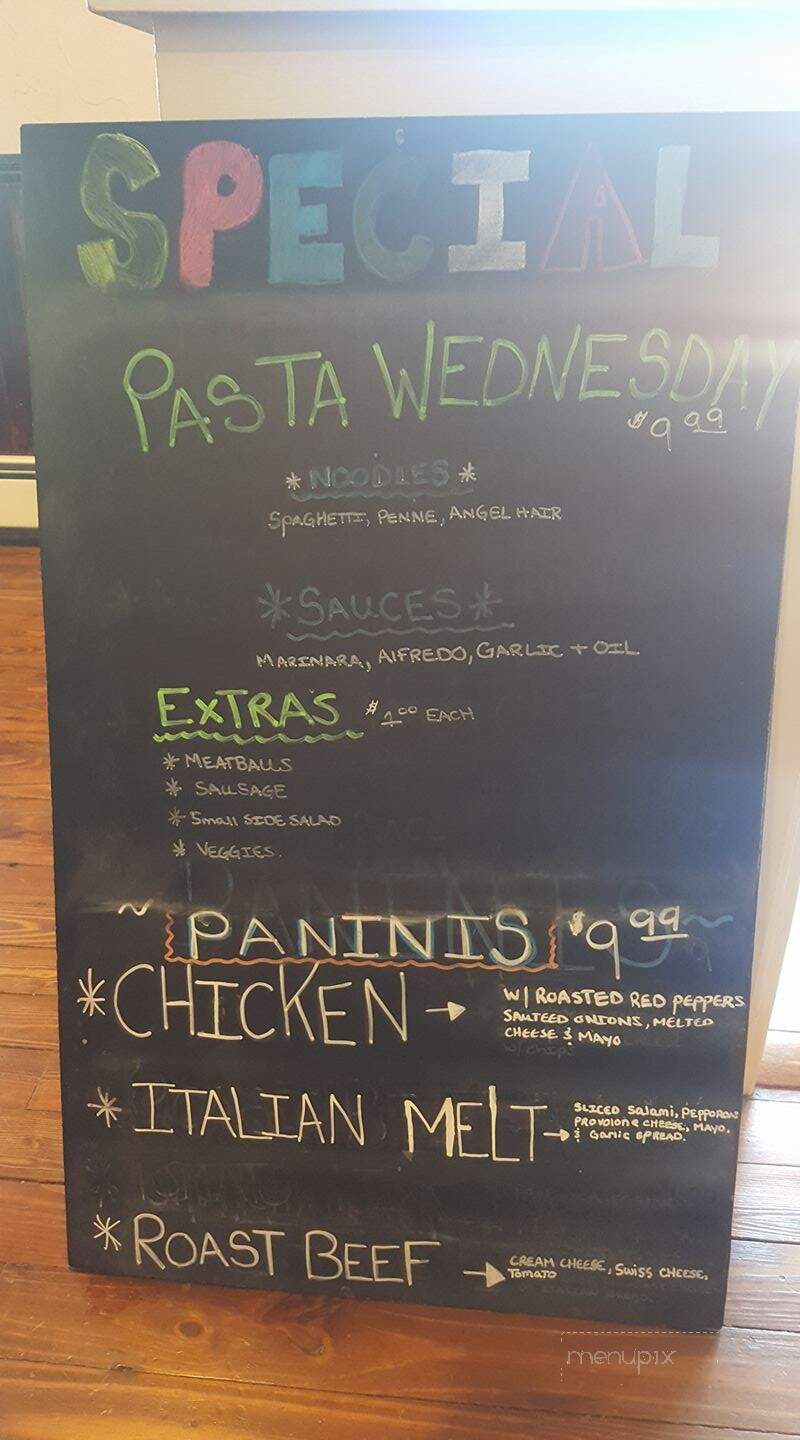 SPECIAL
PASTA WEDNESDAY
$9.99
*NOODLES*
SPAGHETTI, PENNE, ANGEL HAIR
*SAUCES*
MARINARA, AlFREDO, GARLIC + OIL
EXTRAS $1.00 EACH
* MEATBALLS
* SAUSAGE
* Small SIDE SALAD
* VEGGIES.
~ PANINIS $9.99 ~
* CHICKEN → W/ ROASTED RED PEPPERS
SAUTEED ONIONS, MELTED
CHEESE & MAYO
w/ chips
* ITALIAN MELT → SLICED Salami, PEPPORONI
PROVOLONE CHEESE, MAYO,
& Garlic SPREAD.
* ROAST BEEF → CREAM CHEESE, SWISS CHEESE,
TOMATO
menupix